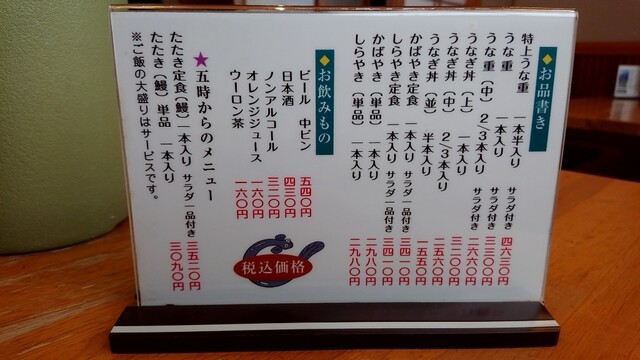 お品書き
特上うな重 一本半入り サラダ付き 四六三〇円
うな重 一本入り サラダ付き 三三〇〇円
うな重(中) 2/3本入り サラダ付き 二六六〇円
うなぎ丼(上) 一本入り 三二〇〇円
うなぎ丼(中) 2/3本入り 二五六〇円
うなぎ丼(並) 半本入り 一五五〇円
かばやき定食 一本入り サラダ一品付き 三四一〇円
しらやき定食 一本入り サラダ一品付き 三四一〇円
かばやき(単品) 一本入り 二九八〇円
しらやき(単品) 一本入り 二九八〇円
お飲みもの
ビール 中ビン 五四〇円
日本酒 四三〇円
ノンアルコール 三二〇円
オレンジジュース 一六〇円
ウーロン茶 一六〇円
税込価格
★五時からのメニュー
たたき定食(鰻) 一本入り サラダ一品付き 三五二〇円
たたき(鰻)単品 一本入り 三〇九〇円
※ご飯の大盛りはサービスです。